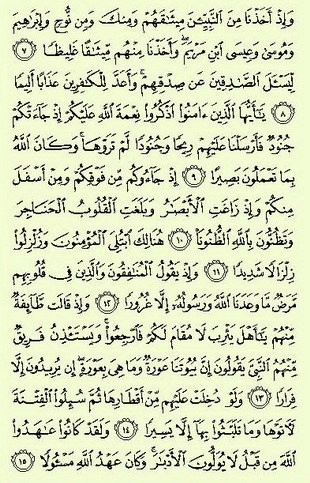 وَإِذْ أَخَذْنَا مِنَ النَّبِيِّـۧنَ مِيثَـٰقَهُمْ وَمِنكَ وَمِن نُّوحٍ وَإِبْرَٰهِيمَ
وَمُوسَىٰ وَعِيسَى ٱبْنِ مَرْيَمَ ۖ وَأَخَذْنَا مِنْهُم مِّيثَـٰقًا غَلِيظًا ٧
لِّيَسْـَٔلَ ٱلصَّـٰدِقِينَ عَن صِدْقِهِمْ ۚ وَأَعَدَّ لِلْكَـٰفِرِينَ عَذَابًا أَلِيمًا
٨ يَـٰٓأَيُّهَا ٱلَّذِينَ ءَامَنُوا۟ ٱذْكُرُوا۟ نِعْمَةَ ٱللَّهِ عَلَيْكُمْ إِذْ جَآءَتْكُمْ
جُنُودٌ فَأَرْسَلْنَا عَلَيْهِمْ رِيحًا وَجُنُودًا لَّمْ تَرَوْهَا ۚ وَكَانَ ٱللَّهُ
بِمَا تَعْمَلُونَ بَصِيرًا ٩ إِذْ جَآءُوكُم مِّن فَوْقِكُمْ وَمِنْ أَسْفَلَ
مِنكُمْ وَإِذْ زَاغَتِ ٱلْأَبْصَـٰرُ وَبَلَغَتِ ٱلْقُلُوبُ ٱلْحَنَاجِرَ
وَتَظُنُّونَ بِٱللَّهِ ٱلظُّنُونَا۠ ١٠ هُنَالِكَ ٱبْتُلِىَ ٱلْمُؤْمِنُونَ وَزُلْزِلُوا۟
زِلْزَالًا شَدِيدًا ١١ وَإِذْ يَقُولُ ٱلْمُنَـٰفِقُونَ وَٱلَّذِينَ فِى قُلُوبِهِم
مَّرَضٌ مَّا وَعَدَنَا ٱللَّهُ وَرَسُولُهُۥٓ إِلَّا غُرُورًا ١٢ وَإِذْ قَالَت طَّآئِفَةٌ
مِّنْهُمْ يَـٰٓأَهْلَ يَثْرِبَ لَا مُقَامَ لَكُمْ فَٱرْجِعُوا۟ ۚ وَيَسْتَـْٔذِنُ فَرِيقٌ
مِّنْهُمُ ٱلنَّبِىَّ يَقُولُونَ إِنَّ بُيُوتَنَا عَوْرَةٌ وَمَا هِىَ بِعَوْرَةٍ ۖ إِن يُرِيدُونَ إِلَّا
فِرَارًا ١٣ وَلَوْ دُخِلَتْ عَلَيْهِم مِّنْ أَقْطَارِهَا ثُمَّ سُئِلُوا۟ ٱلْفِتْنَةَ
لَـَٔاتَوْهَا وَمَا تَلَبَّثُوا۟ بِهَآ إِلَّا يَسِيرًا ١٤ وَلَقَدْ كَانُوا۟ عَـٰهَدُوا۟
ٱللَّهَ مِن قَبْلُ لَا يُوَلُّونَ ٱلْأَدْبَـٰرَ ۚ وَكَانَ عَهْدُ ٱللَّهِ مَسْـُٔولًا ١٥